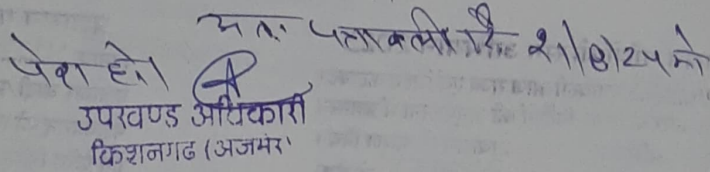 अतः पत्रावली दि० 21/8/24 को
पेश हो।
उपखण्ड अधिकारी
किशनगढ (अजमेर)